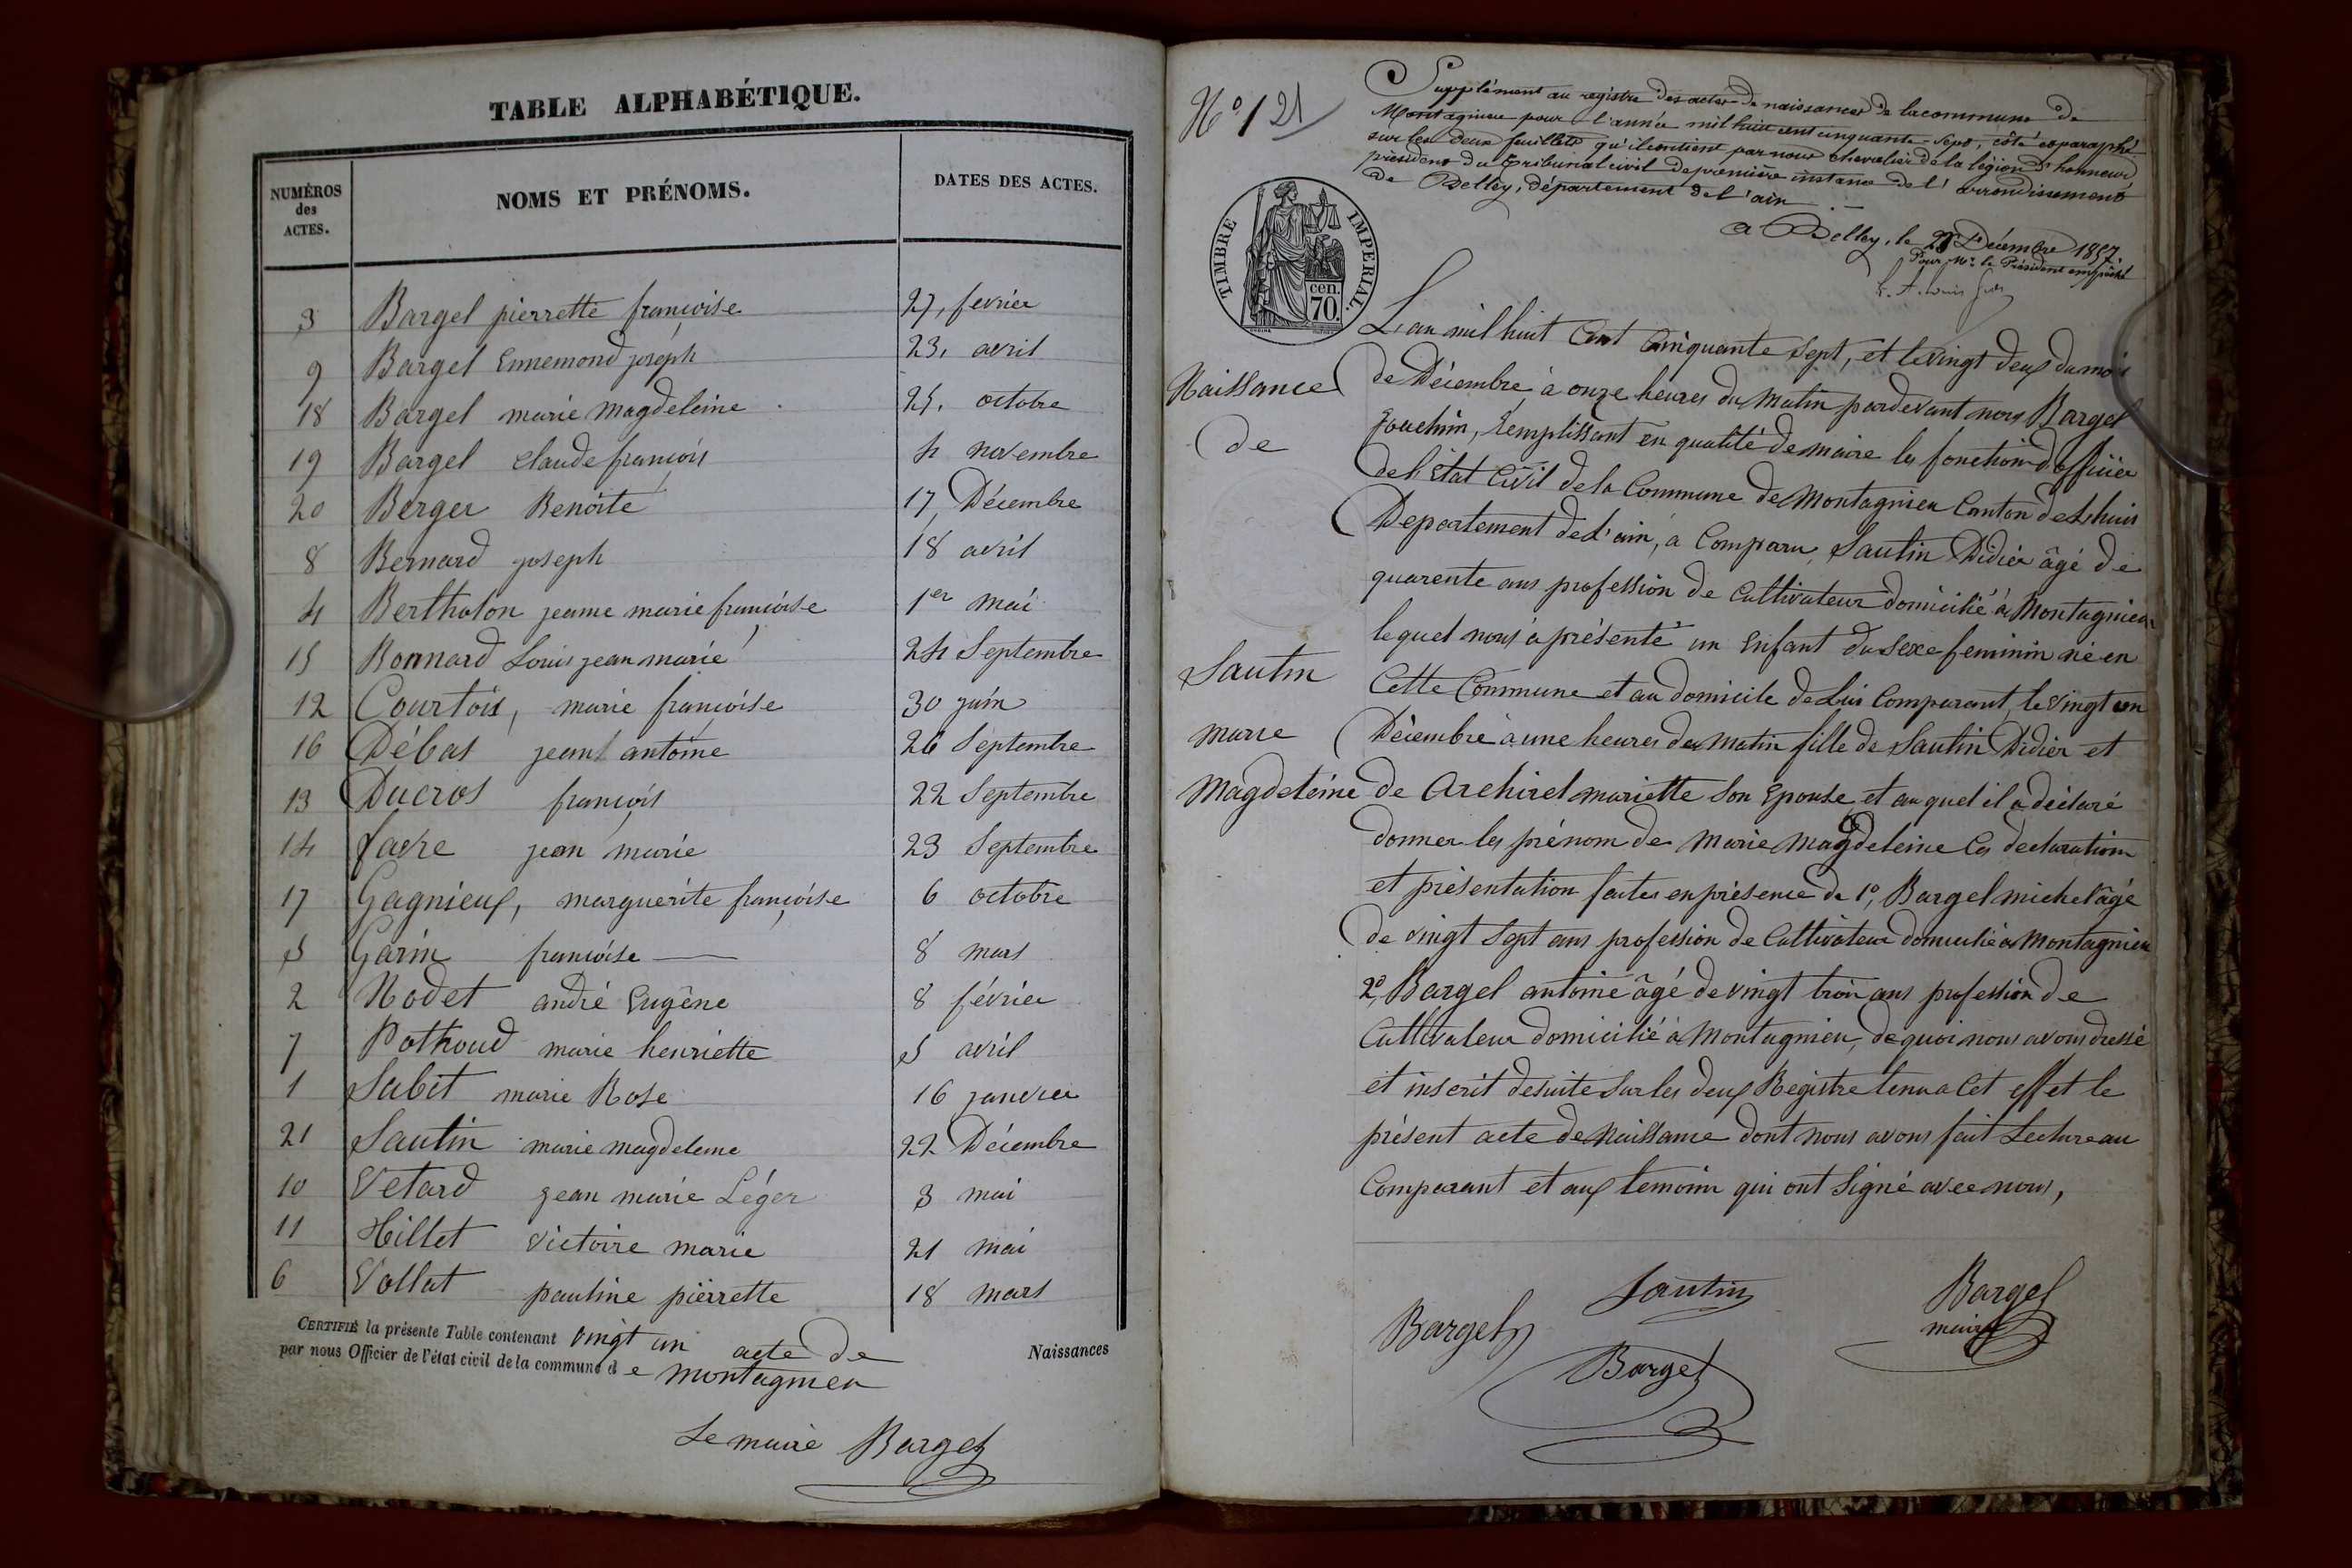 TABLE ALPHABÉTIQUE.
NUMÉROS des ACTES. NOMS ET PRÉNOMS. DATES DES ACTES.
3 Bargel pierrette françoise 27, fevrier
9 Bargel Ennemond joseph 23, avril
18 Bargel marie magdeleine 25, octobre
19 Bargel claude françois 4 novembre
20 Berger Benoite 17, Décembre
8 Bernard joseph 18 avril
4 Bertholon jeanne marie françoise 1er mai
15 Bonnard Louis jean marie 24 Septembre
12 Courtois, marie françoise 30 juin
16 Débas jean antoine 26 Septembre
13 Ducros françois 22 Septembre
14 favre jean marie 23 Septembre
17 Gagnieux, marguerite françoise 6 octobre
5 Garin françoise 8 mars
2 Nodet andré Eugène 8 février
7 Pothoud marie henriette 5 avril
1 Sabit marie Rose 16 janvier
21 Sautin marie magdeleine 22 Décembre
10 Vetard jean marie Léger 8 mai
11 Hillet victoire marie 21 mai
6 Vollat pauline pierrette 18 mars
CERTIFIÉ la présente Table contenant vingt un acte de Naissances
par nous Officier de l'état civil de la commune de montagnieu
Le maire Bargel
N° 121
Supplément au registre des actes de naissances de la commune de
Montagnieu pour l'année mil huit cent cinquante-sept, côté et paraphé
sur les deux feuillets qu'il contient par nous chevalier de la légion d'honneur
président du tribunal civil de première instance de l'arrondissement
de Belley, département de l'ain.
a Belley, le Décembre 1857.
Pour Mr. le Président empêché
TIMBRE IMPERIAL.
cen. 70.
L'an mil huit Cent Cinquante Sept, et le vingt deux du mois
Naissance de Décembre à onze heures du Matin pardevant nous Bargel
de Jouchim, Remplissant en qualité de maire les fonction d'officier
del'Etat Civil de la Commune de Montagnieu Canton de Lhuis
Departement de L'ain, a Comparu Sautin Didier âgé de
quarente ans profession de Cultivateur domicilié à Montagnieu
lequel nous a présenté un Enfant du Sexe feminin né en
Sautin Cette Commune et au domicile de Lui Comparant, le vingt un
marie Décembre à une heures du matin fille de Sautin Didier et
magdeleine de Archirel mariette Son Epouse et au quel il a déclaré
donner les prénom de Marie Magdeleine Ces declaration
et présentation faites en présence de 1°, Bargel michel âgé
de vingt Sept ans profession de Cultivateur domicilié à Montagnieu
2°, Bargel antoine âgé de vingt trois ans profession de
Cultivateur domicilié à Montagnieu, de quoi nous avons dressé
et inscrit desuite Sur les deux Registre tenu a Cet effet le
présent acte de Naissance dont nous avons fait Lecture au
Comparant et aux temoins qui ont Signé avec nous,
Sautin
Bargel maire
Bargel
Bargel